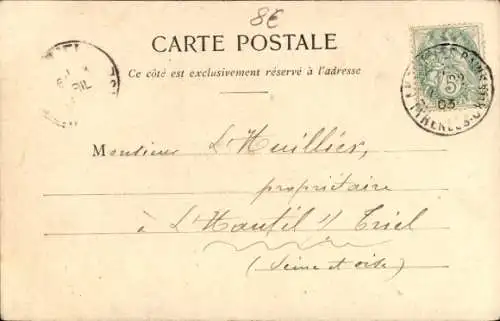 8€
CARTE POSTALE
Ce côté est exclusivement réservé à l'adresse
Monsieur L'Huillier,
propriétaire
à L'Hautil s/ Triel
(Seine et oise)
5
03